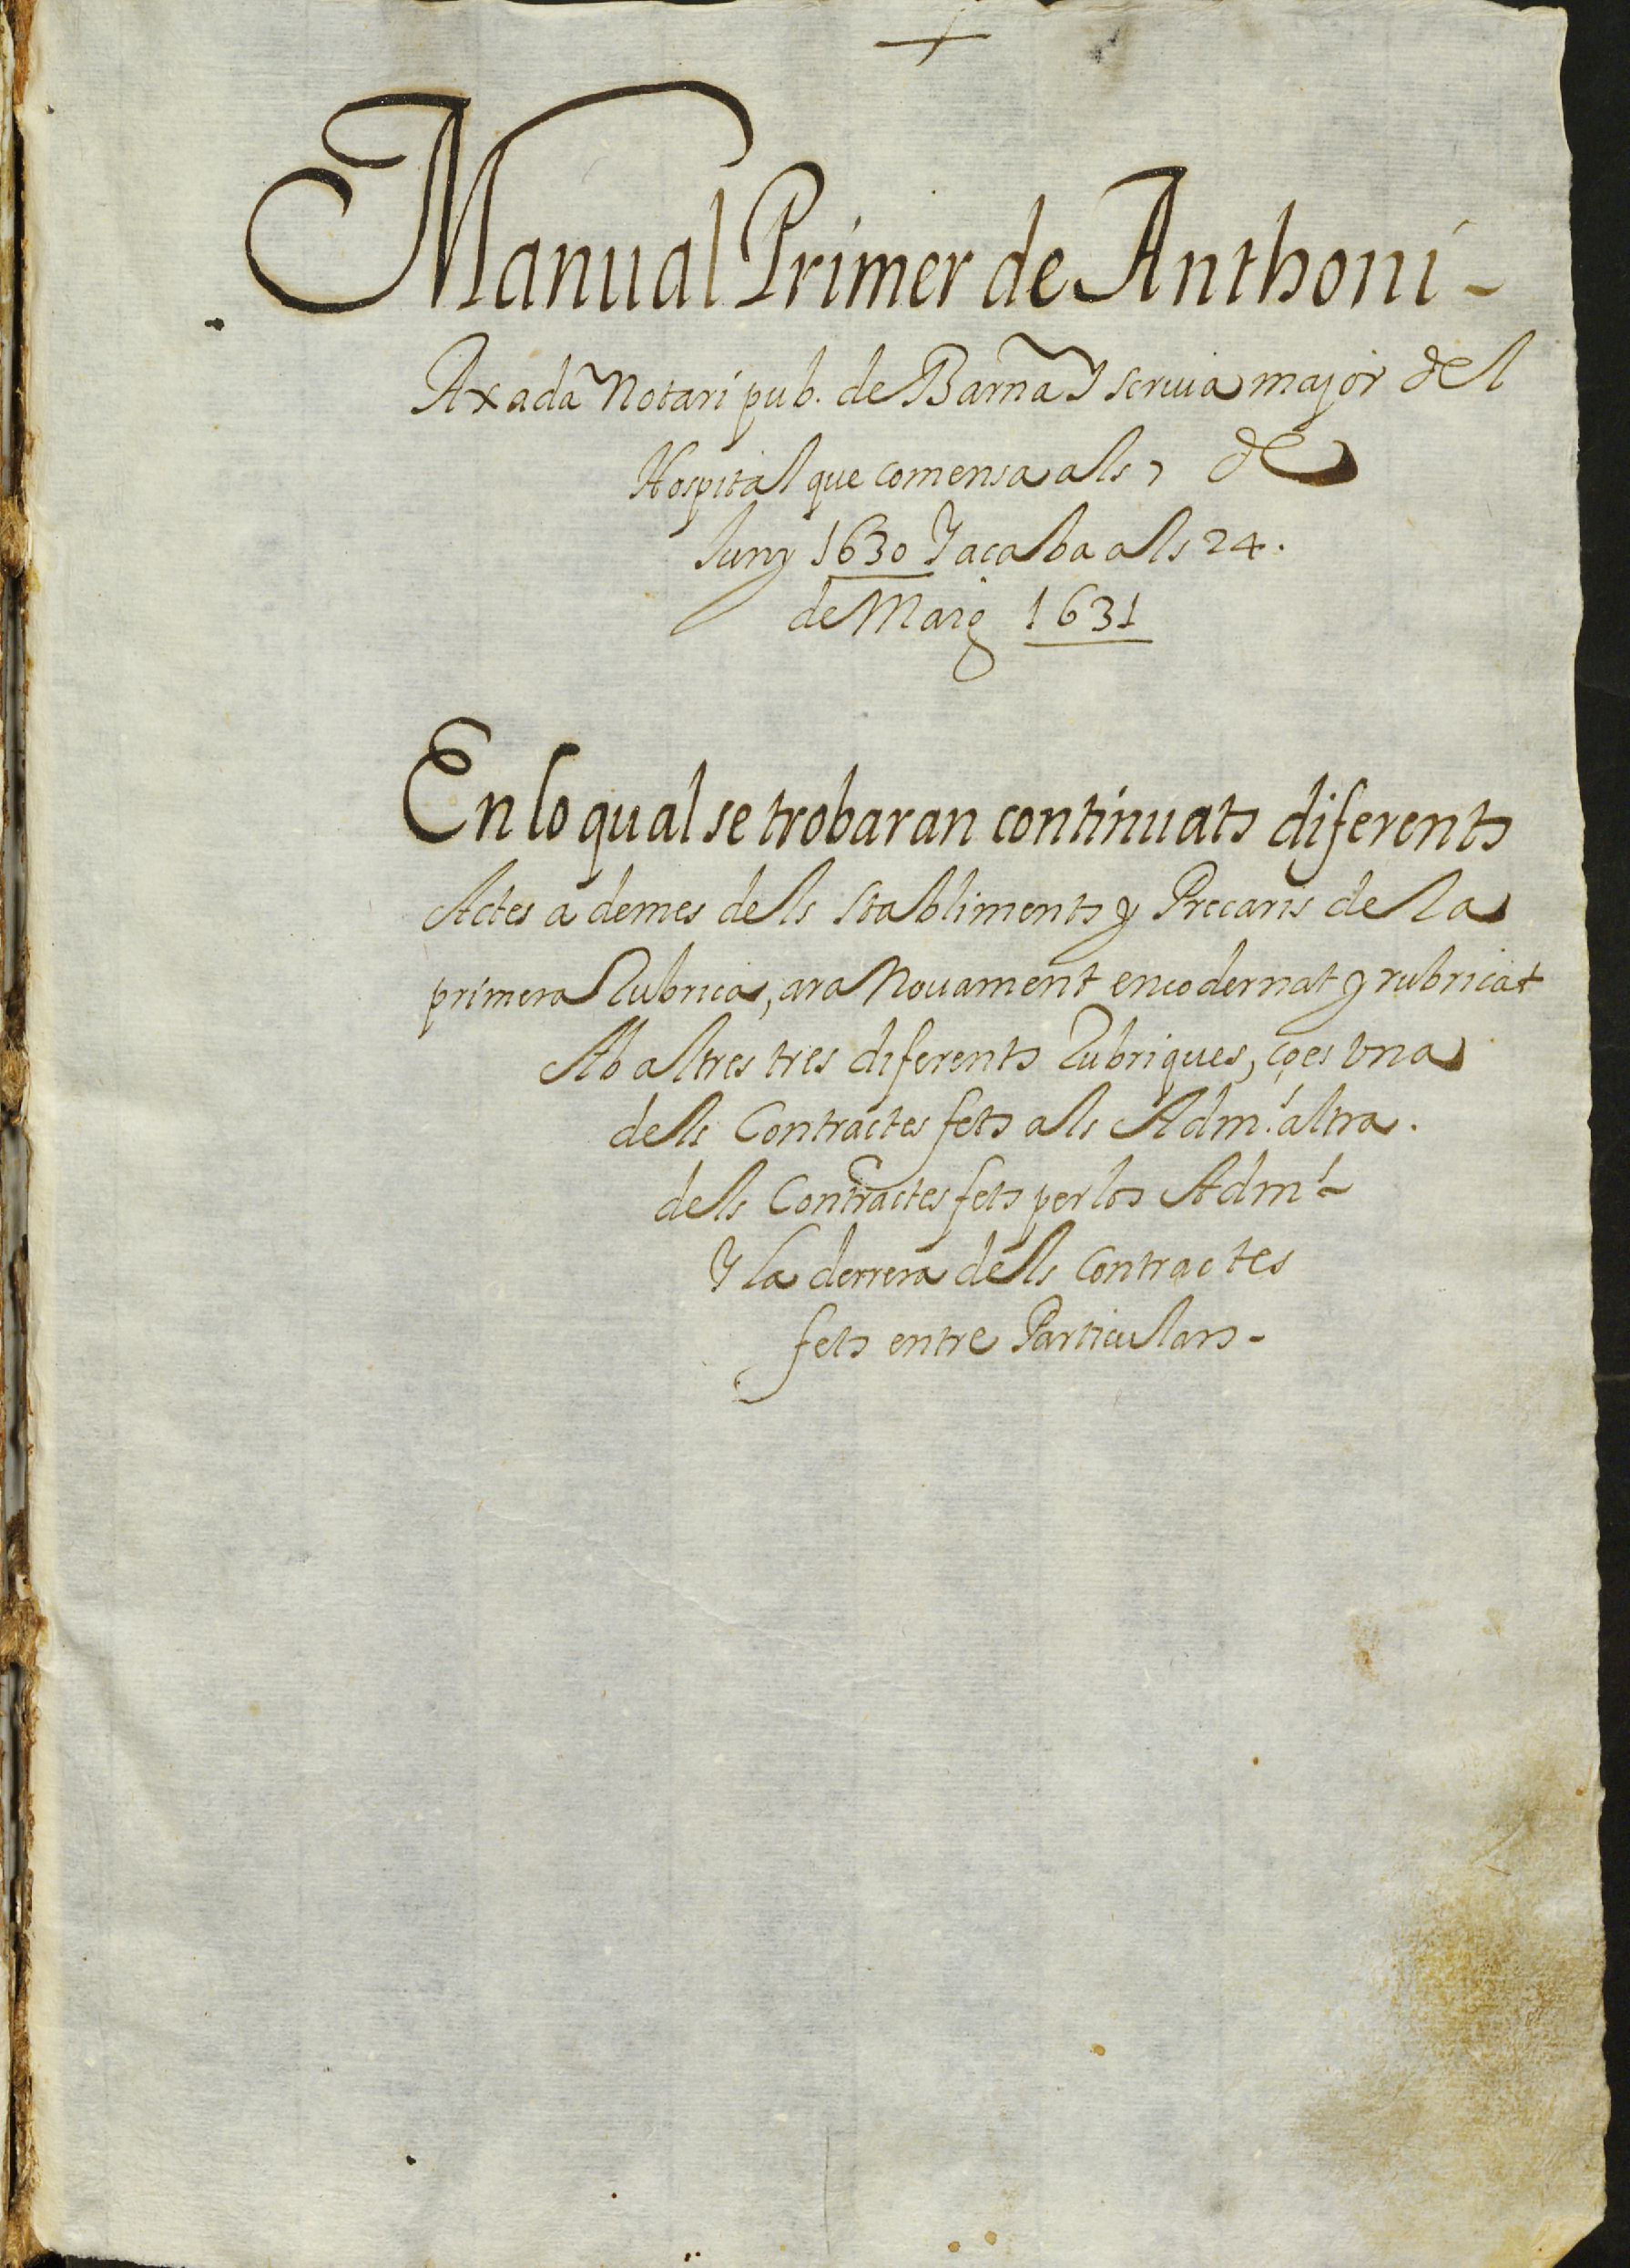 Manual Primer de Anthoni -
Axada Notari pub. de Barna Y scriua major del
Hospital que comensa als 7 de
Juny 1630 Y acaba als 24.
de Maig 1631
En lo qual se trobaran continuats diferents
Actes a demes dels stabliments y Precaris de la
primera Rubrica, ara Nouament encodernat y rubricat
Ab altres tres diferents Rubriques, ço es Vna
dels Contractes fets als Adm.rs altra.
dels Contractes fets per los Adm.rs
Y la derrera dels Contractes
fets entre Particulars -